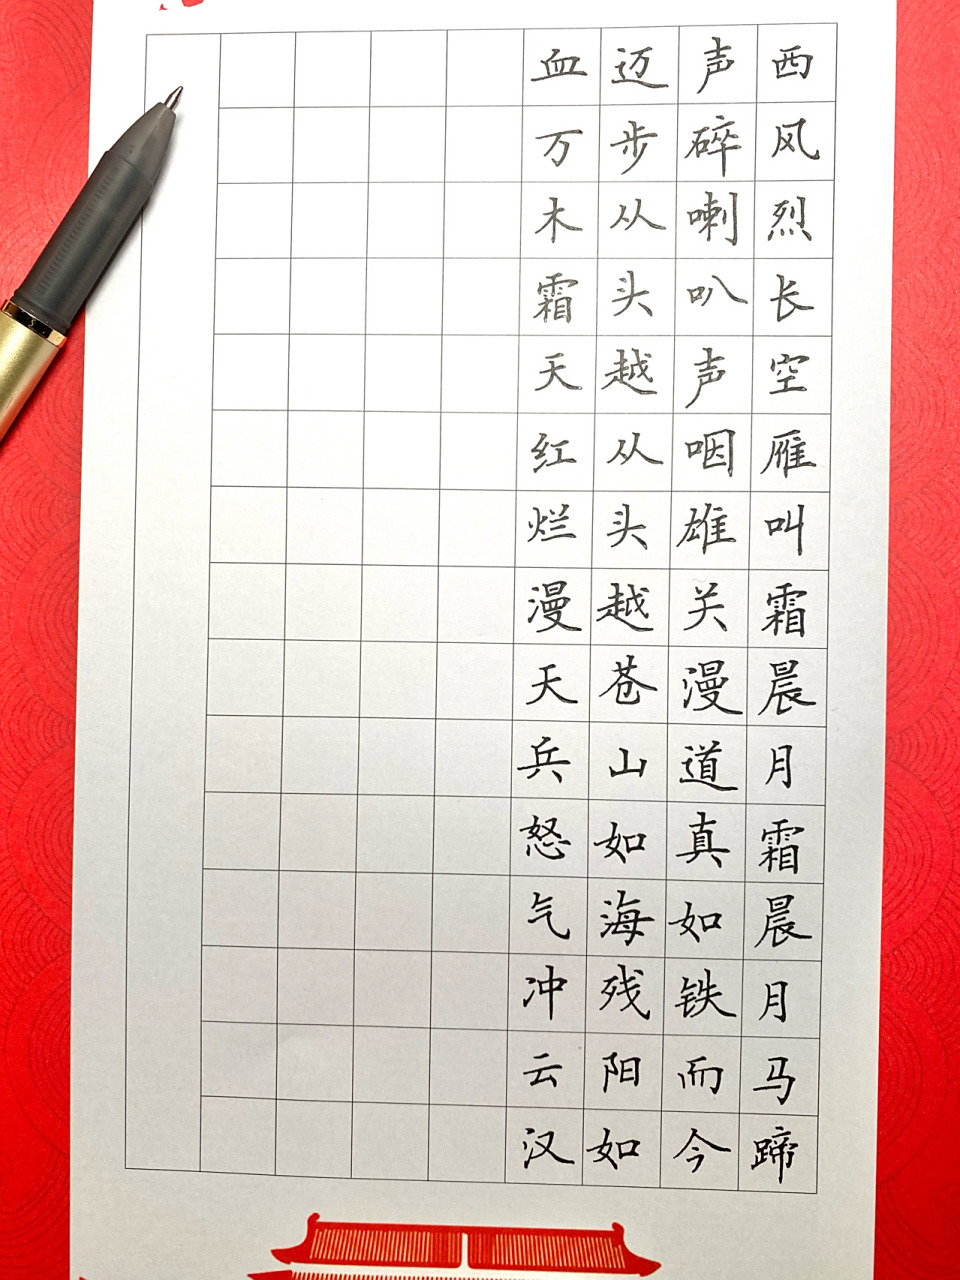 西风烈长空雁叫霜晨月霜晨月马蹄
声碎喇叭声咽雄关漫道真如铁而今
迈步从头越从头越苍山如海残阳如
血万木霜天红烂漫天兵怒气冲云汉